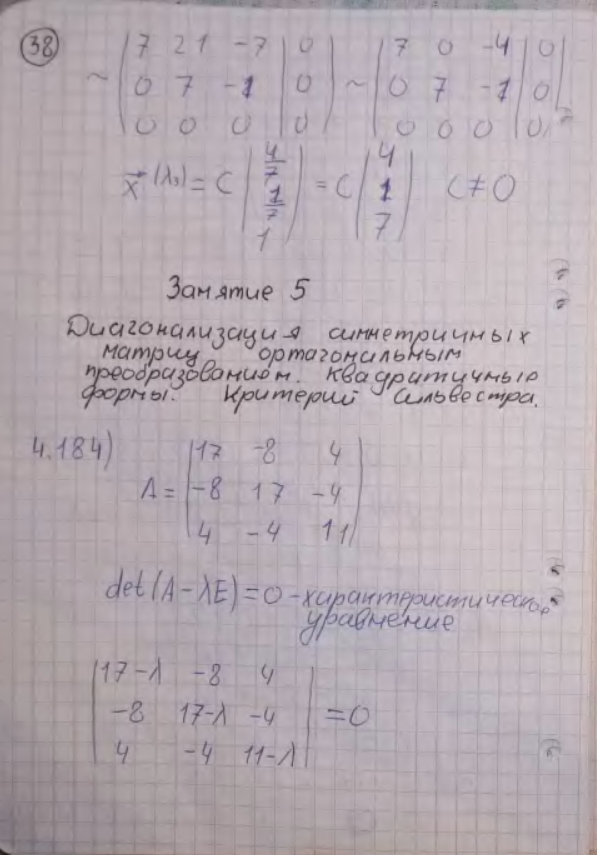 38
~ | 7 21 -7 | 0 | ~ | 7 0 -4 | 0 |
| 0 7 -1 | 0 | | 0 7 -1 | 0 |
| 0 0 0 | 0 | | 0 0 0 | 0 |
x⃗^(λ₃) = C | 4/7 1/7 1 | = C | 4 1 7 | C ≠ 0
Занятие 5
Диагонализация симметричных
матриц ортагональным
преобразованием. Квадратичные
формы. Критерий Сильвестра.
4.184)
A = | 17 -8 4 |
| -8 17 -4 |
| 4 -4 11 |
det(A - λE) = 0 - характеристическо
уравнение
| 17-λ -8 4 |
| -8 17-λ -4 | = 0
| 4 -4 11-λ |